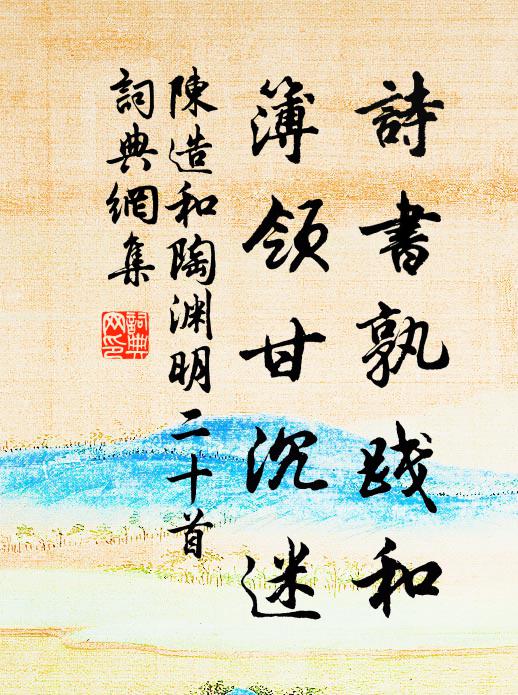 詩書孰踐和
簿領甘沉迷
陳造和陶渊明二十首
詞典網集
詞典
网印